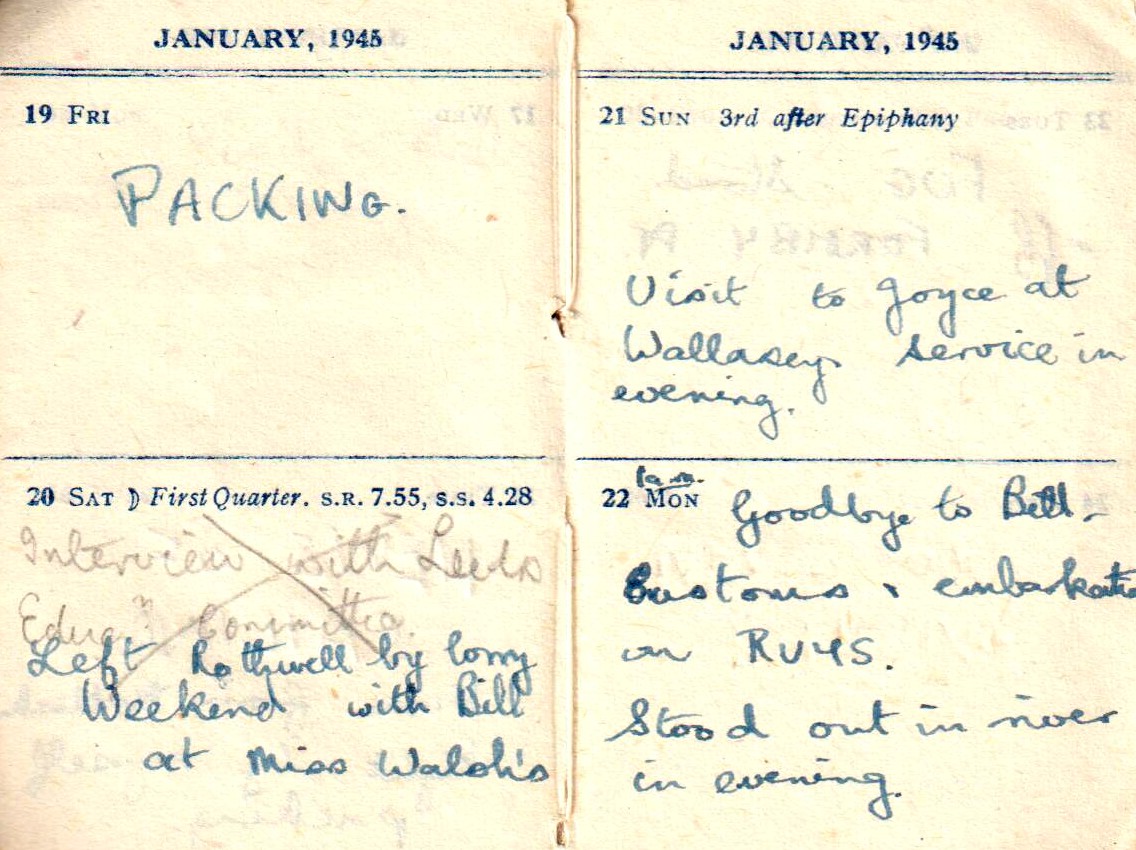 JANUARY, 1945
19 FRI
PACKING.
20 SAT ☽ First Quarter. S.R. 7.55, S.S. 4.28
Interview with Leeds
Educn Committee.
Left Rothwell by lorry
Weekend with Bill
at Miss Walsh's
JANUARY, 1945
21 SUN 3rd after Epiphany
Visit to Joyce at
Wallasey. Service in
evening.
22 MON Goodbye to Bill.
Customs & embarkation
on RUYS.
Stood out in river
in evening.